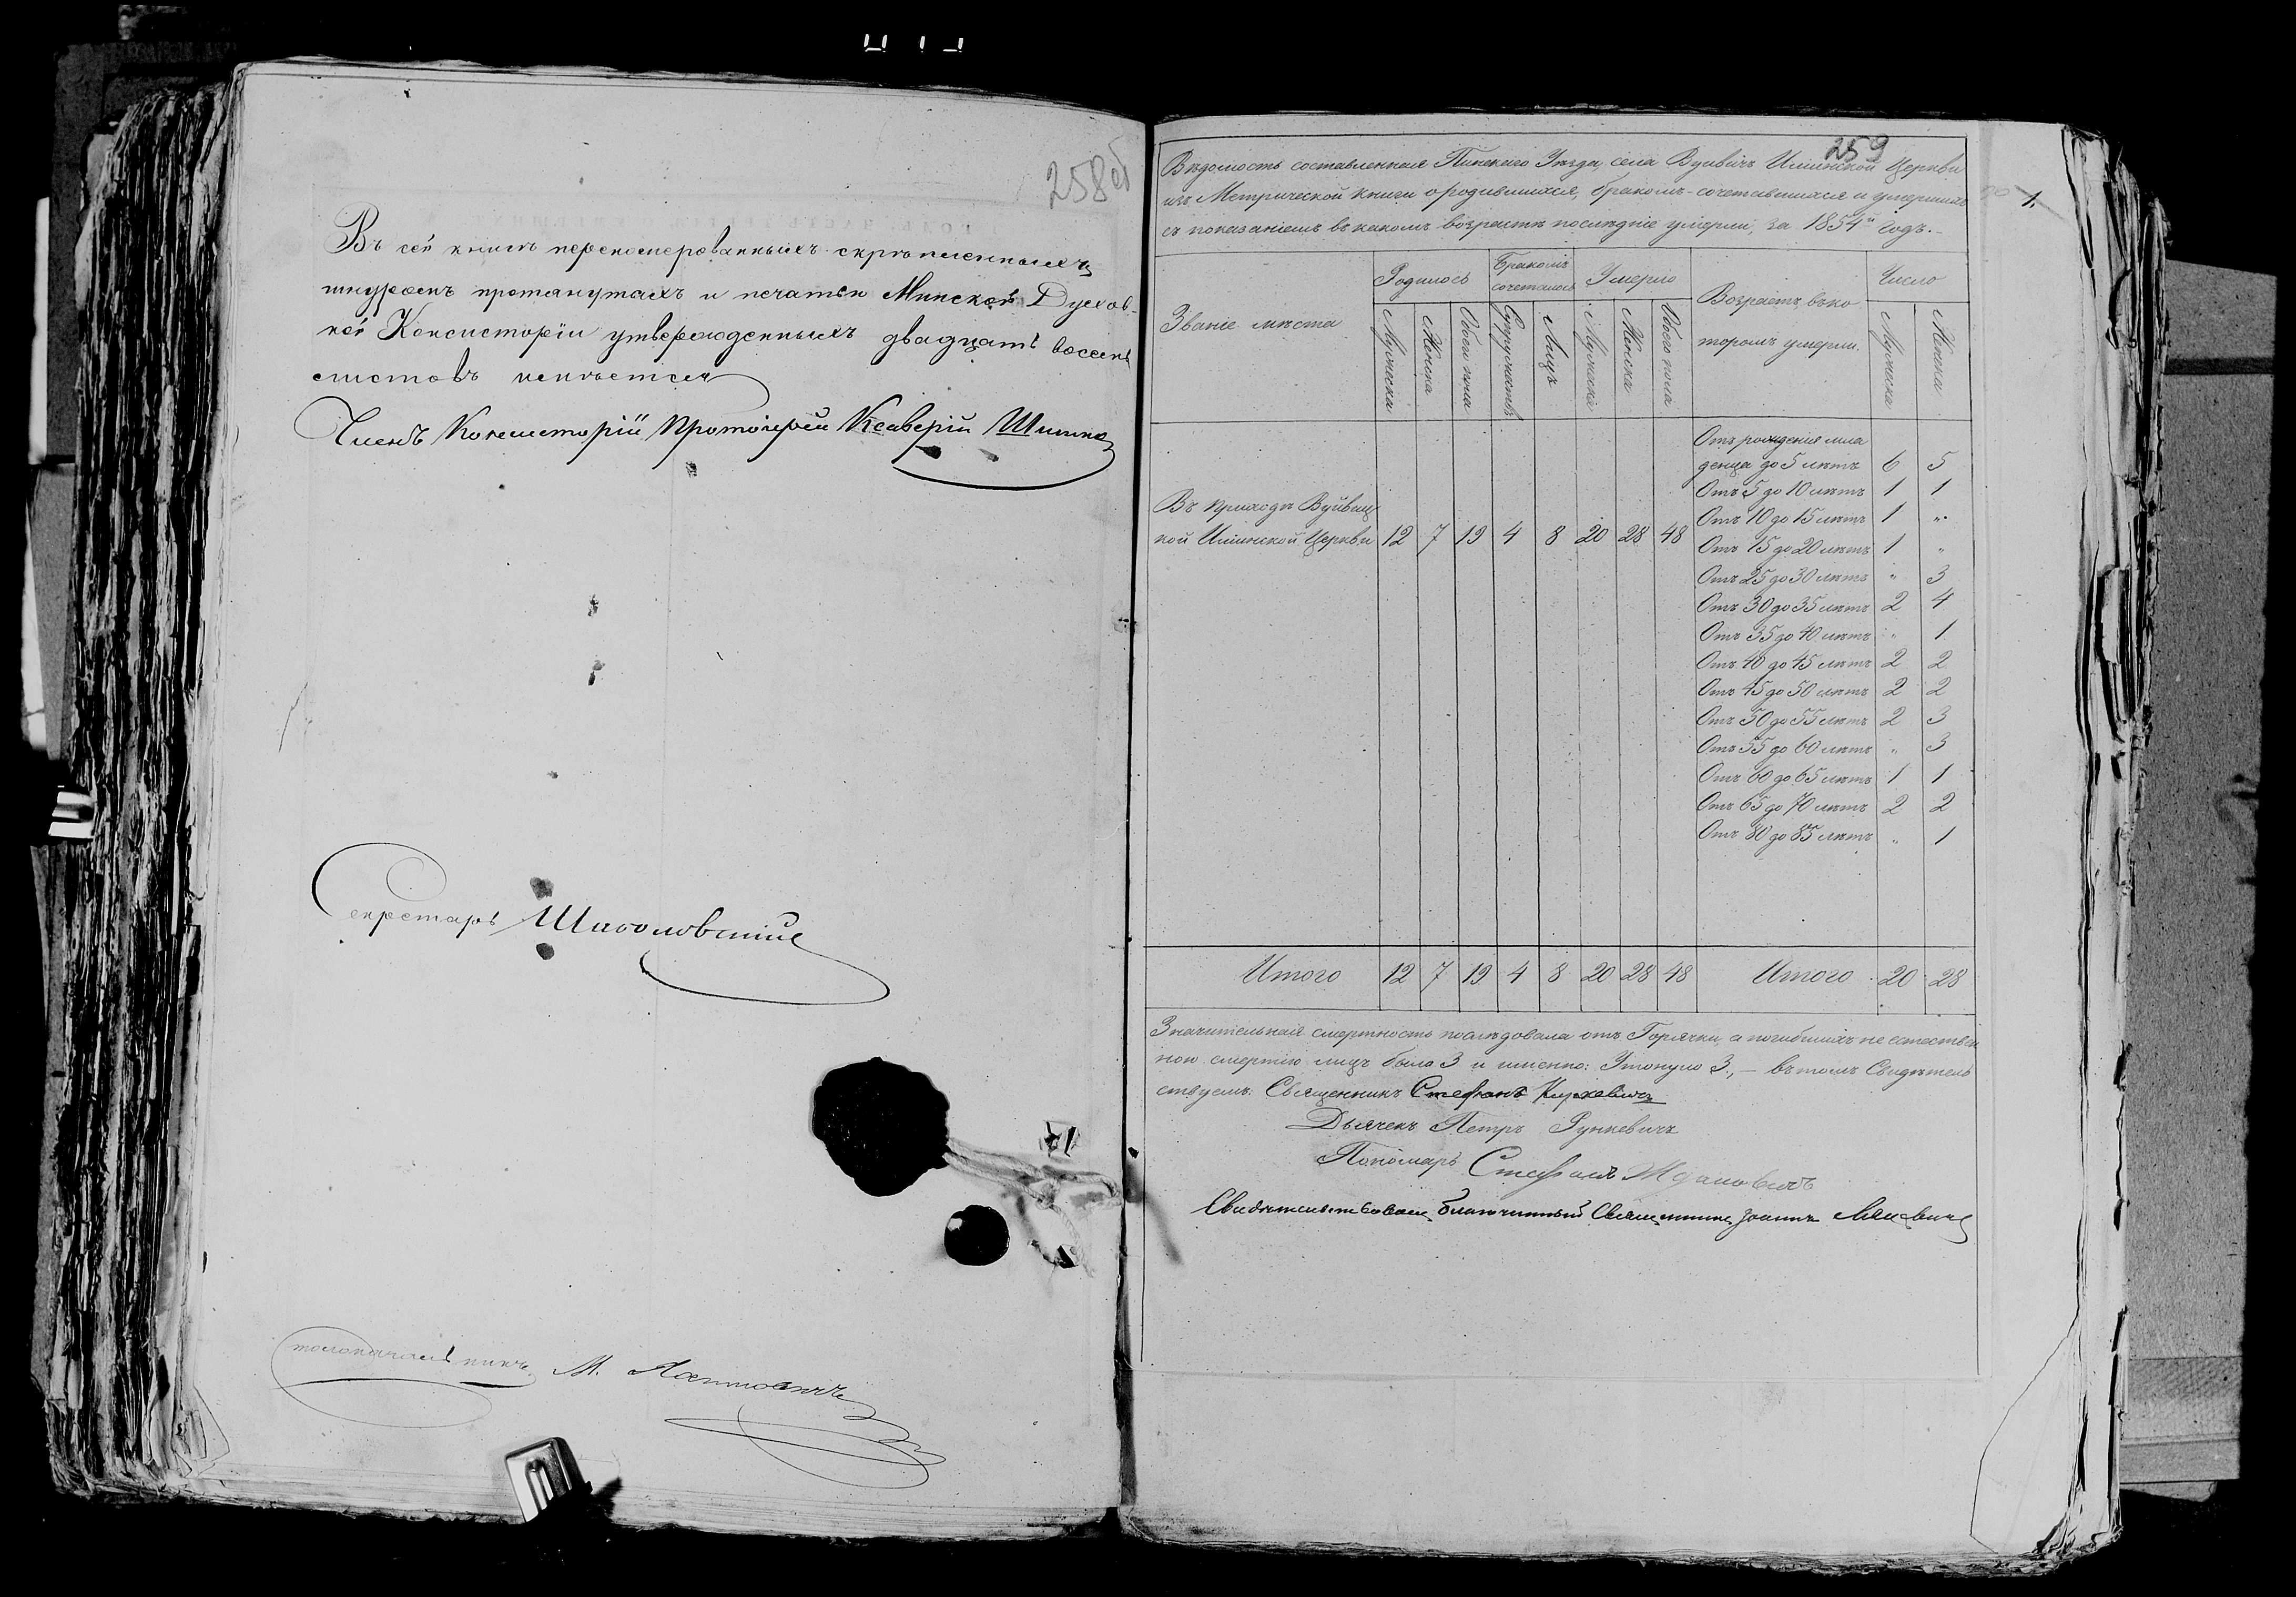 258об
Въ сей книгѣ перенумерованныхъ скрѣпленныхъ
шнуромъ протянутыхъ и печатью Минской Духов-
ной Консисторіи утвержденныхъ двадцать восемь
листовъ имѣется
Членъ Консисторіи Протоіерей Ксаверій
Секретарь
столоначальникъ М.
259
Вѣдомость составленная Пинскаго Уѣзда, села Вуйвичъ Ильинской Церкви
изъ Метрической книги о родившихся, бракомъ-сочетавшихся и умершихъ
съ показаніемъ въ какомъ возрастѣ послѣдніе умерли, за 1854й годъ.
1.
Званіе мѣста Родилось Бракомъ сочеталось Умерло Возрастъ, въ ко торомъ умерли. Число
Мужеска Женска Обоего пола Супружествъ Лицъ Мужеска Женска Обоего пола Мужеска Женска
Отъ рожденія мла
денца до 5 лѣтъ 6 5
Отъ 5 до 10 лѣтъ 1 1
Въ приходѣ Вуйвиц
Отъ 10 до 15 лѣтъ 1 "
кой Ильинской Церкви 12 7 19 4 8 20 28 48
Отъ 15 до 20 лѣтъ 1 "
Отъ 25 до 30 лѣтъ " 3
Отъ 30 до 35 лѣтъ 2 4
Отъ 35 до 40 лѣтъ " 1
Отъ 40 до 45 лѣтъ 2 2
Отъ 45 до 50 лѣтъ 2 2
Отъ 50 до 55 лѣтъ 2 3
Отъ 55 до 60 лѣтъ " 3
Отъ 60 до 65 лѣтъ 1 1
Отъ 65 до 70 лѣтъ 2 2
Отъ 80 до 85 лѣтъ " 1
Итого 12 7 19 4 8 20 28 48 Итого 20 28
Значительная смертность послѣдовала отъ Горячки, а погибшихъ не естествен
ною смертію лицъ было 3 и именно: Утонуло 3., — въ томъ Свидѣтель
ствуемъ: Священникъ Стефанъ
Дьячекъ Петръ Рункевичъ
Пономарь Стефанъ Ждановичъ
Свидѣтельствовалъ Благочинный Священникъ Іоаннъ